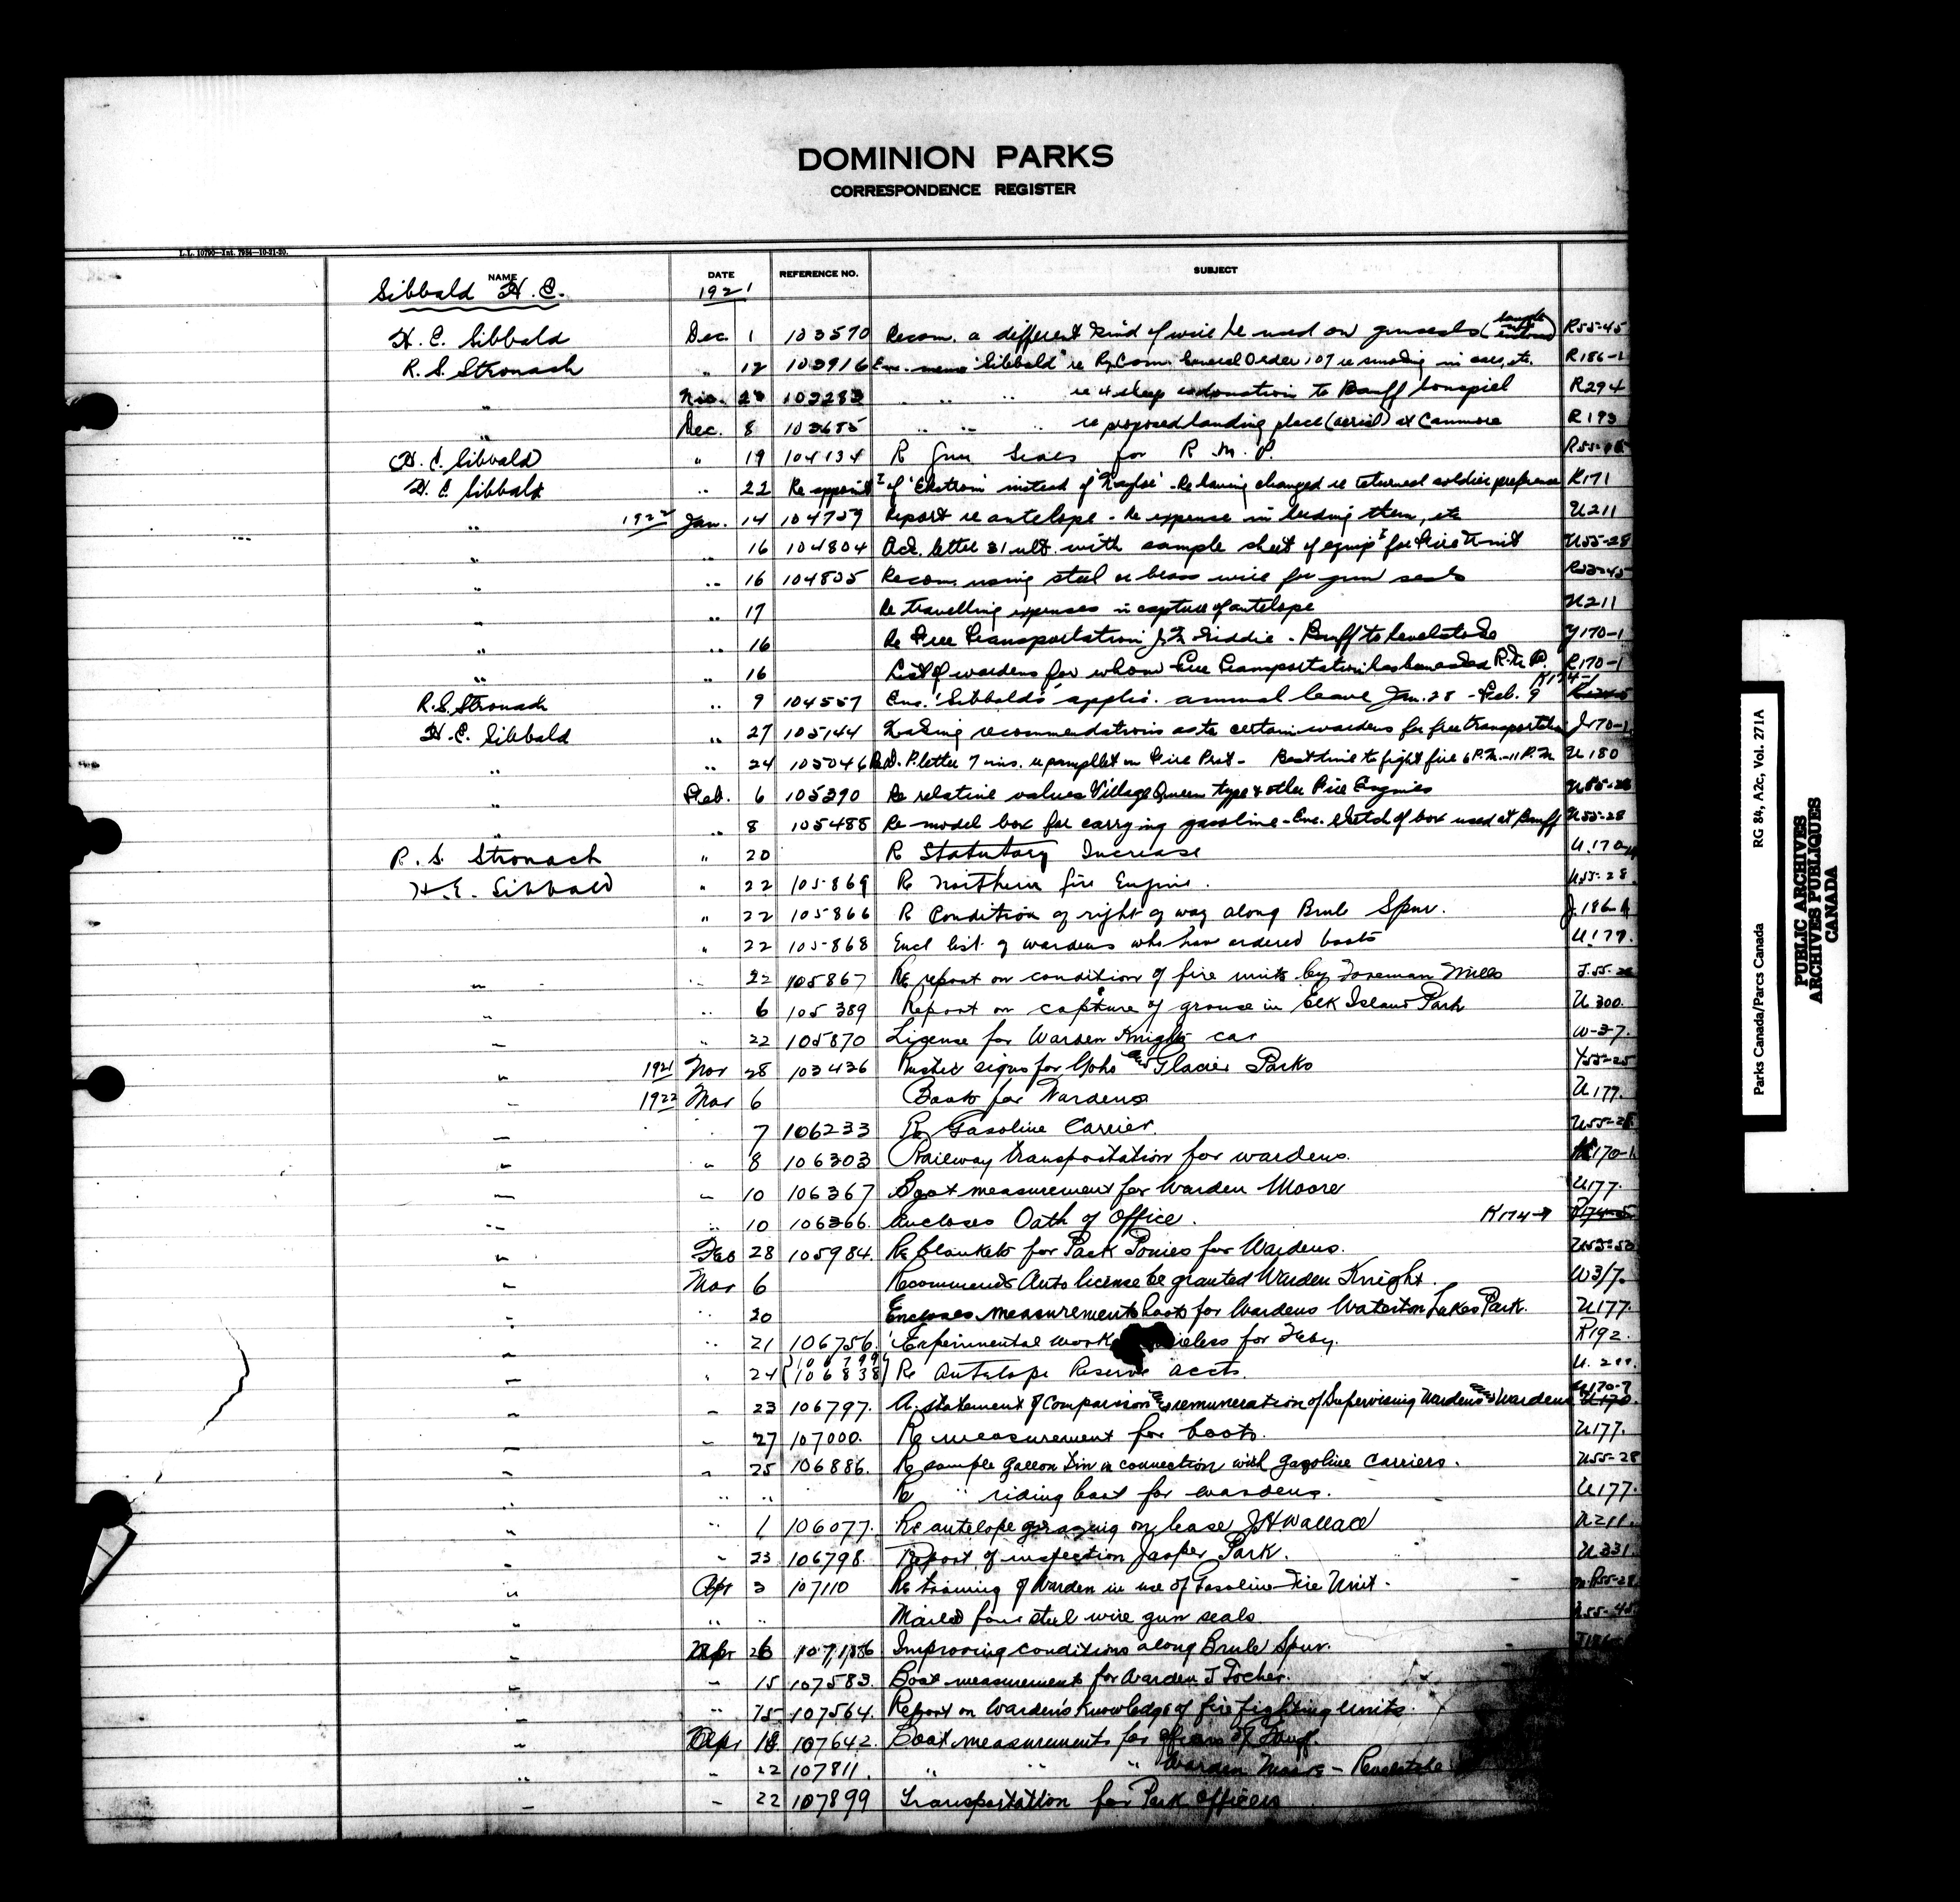 DOMINION PARKS
CORRESPONDENCE REGISTER
L.L. 10790—Int. 7984—10-21-20.
NAME DATE REFERENCE NO. SUBJECT
Sibbald H. C. 1921
H. C. Sibbald Dec. 1 103570 Recom. a different kind of wire be used on gunseals R55-45
R. S. Stronach " 12 103916 Enc. memo 'Sibbald' re Ry. Com. General Order 107 re smoking in cars, etc. R186-1
" Nov. 103283 " " " re 4 sheep as donation to Banff bonspiel R294
" Dec. 8 103685 " " " re proposed landing place (aerial) at Canmore R193
H. C. Sibbald " 19 104134 R Gun Seals for R. M. P.
H. C. Sibbald " 22 Re appoint of 'Ekstrom' instead of - Re having changed re returned soldier preference R171
" 1922 Jan. 14 104759 Report re antelope - Re expense in feeding them, etc U211
" " 16 104804 Ack. letter 31 ult. with sample sheet of equipt for Fire Unit U55-28
" " 16 104805 Recom. using steel or brass wire for gun seals R55-45
" " 17 Re travelling expenses in capture of antelope U211
" " 16 Re Free Transportation - Banff to Revelstoke Y170-1
" " 16 List of wardens for whom free transportation has been asked R.M.P. R170-1
R. S. Stronach " 9 104557 Enc. 'Sibbald's' applic. annual leave Jan. 28 - Feb. 9 K174-1
H. C. Sibbald " 27 105144 Making recommendations as to certain wardens for free transportation J170-1
" " 24 105046 Re D. P. letter 7 ins. re pamphlet on Fire Prot - Best time to fight fire 6 P.M.-11 P.M. U180
" Feb. 6 105390 Re relative values Village Queen type & other Fire Engines U55-28
" " 8 105488 Re model box for carrying gasoline - Enc. sketch of box used at Banff U55-28
R. S. Stronach " 20 R Statutory Increase U.170
H. C. Sibbald " 22 105869 Re Northern fire Engine. U55-28.
" 22 105866 R Condition of right of way along Brule Spur. J.186-
" 22 105868 Encl list of wardens who have ordered boots U.177.
" " 22 105867 Re report on condition of fire units by Foreman Mills J.55-28
" " 6 105389 Report on capture of grouse in Elk Island Park U.300.
" " 22 105870 License for Warden Knights car W-37.
" 1921 Nov 28 103436 Poster signs for Yoho and Glacier Parks Y55-25
" 1922 Mar 6 Boots for Wardens U177.
" " 7 106233 Re Gasoline Carrier. U55-28
" " 8 106303 Railway transportation for wardens. 170-1
" " 10 106367 Boot measurement for Warden Moore U177.
" " 10 106366. Encloses Oath of Office. K174-
" Feb 28 105984. Re blankets for Pack Ponies for Wardens. U55-53
" Mar 6 Recommends Auto license be granted Warden Knight. W3/7.
" " 20 Encloses measurements boots for Wardens Waterton Lakes Park. U177.
" " 21 106756. Experimental work wireless for Feby. R192.
" " 24 {106799 106838} Re Antelope Reserve accts. U. 211.
" " 23 106797. A. statement of Comparsion and remuneration of Supervising Wardens and Wardens U170-7
" " 27 107000. Re measurement for boots. U177.
" " 25 106886. Re sample gallon tin in connection with gasoline carriers. U55-28
" " " Re " riding boot for wardens. U177.
" " 1 106077. Re antelope grazing on lease J H Wallace U211.
" " 23 106798. Report of inspection Jasper Park. U331
" Apr 3 107110 Re training of Warden in use of Gasoline Fire Unit. R55-28
" " " Mailed four steel wire gun seals. R55-45
" Apr 26 Improving conditions along Brule Spur.
" " 15 107583. Boot measurement for Warden J Tocher.
" " 15 107564. Report on Warden's knowledge of fire fighting units.
" Apr 18 107642. Boot measurements for
" " 22 107811. " " " Warden Moore - Revelstoke
" " 22 107899 Transportation for Park Officers
Parks Canada/Parcs Canada RG 84, A2c, Vol. 271A
PUBLIC ARCHIVES
ARCHIVES PUBLIQUES
CANADA